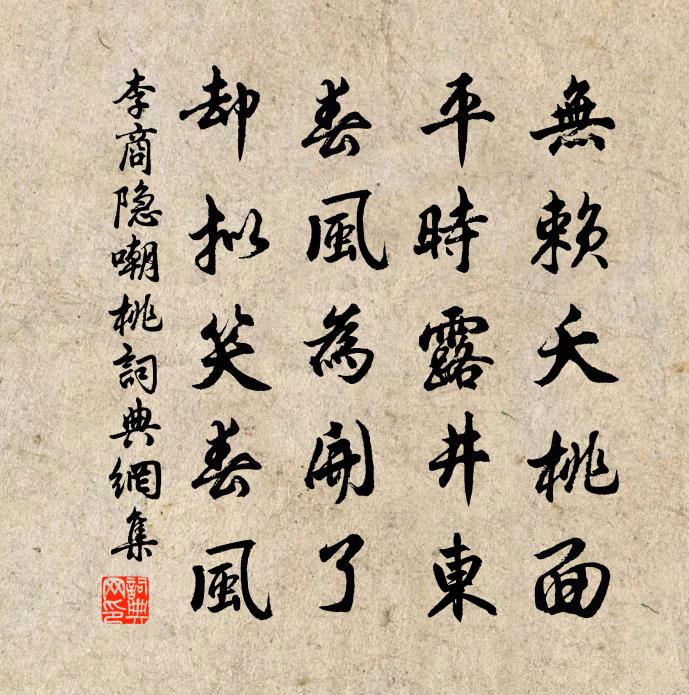 無賴夭桃面
平時露井東
春風為開了
却拟笑春風
李商隐嘲桃詞典網集
詞典網印